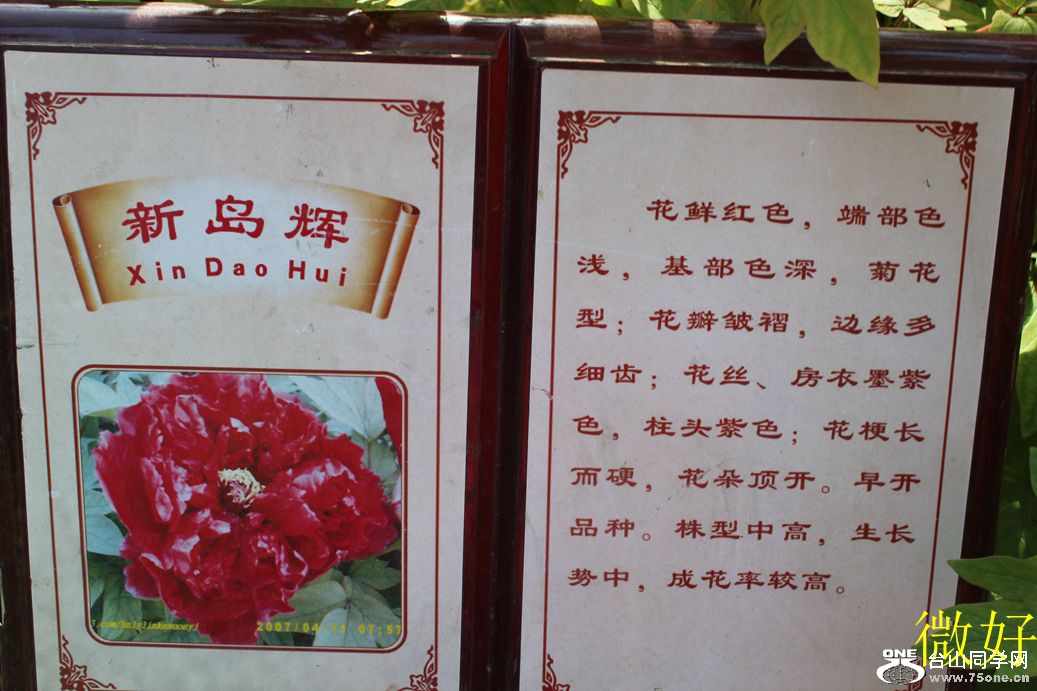 新岛辉
Xin Dao Hui
2007/04/11 07:57
花鲜红色，端部色
浅，基部色深，菊花
型；花瓣皱褶，边缘多
细齿；花丝、房衣墨紫
色，柱头紫色；花梗长
而硬，花朵顶开。早开
品种。株型中高，生长
势中，成花率较高。
微好
ONE 台山同学网
www.75one.cn